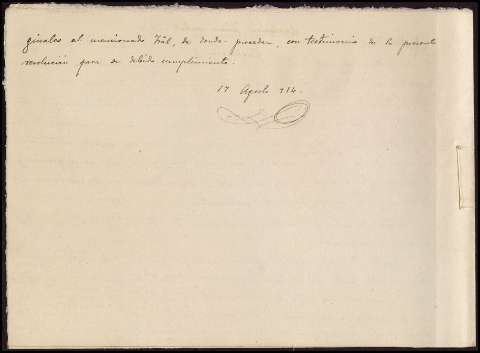 ginales al mencionado Tral, de donde proceden, con testimonio de la presente
resolución para su debido cumplimiento.
17 Agosto 914.